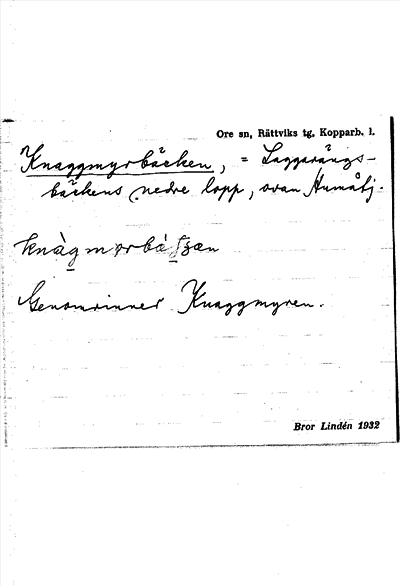 Ore sn, Rättviks tg, Kopparb. l.
Knaggmyrbäcken, = Laggarängs-
bäckens nedre lopp, ovan Humåtj.
Genomrinner Knaggmyren.
Bror Lindén 1932